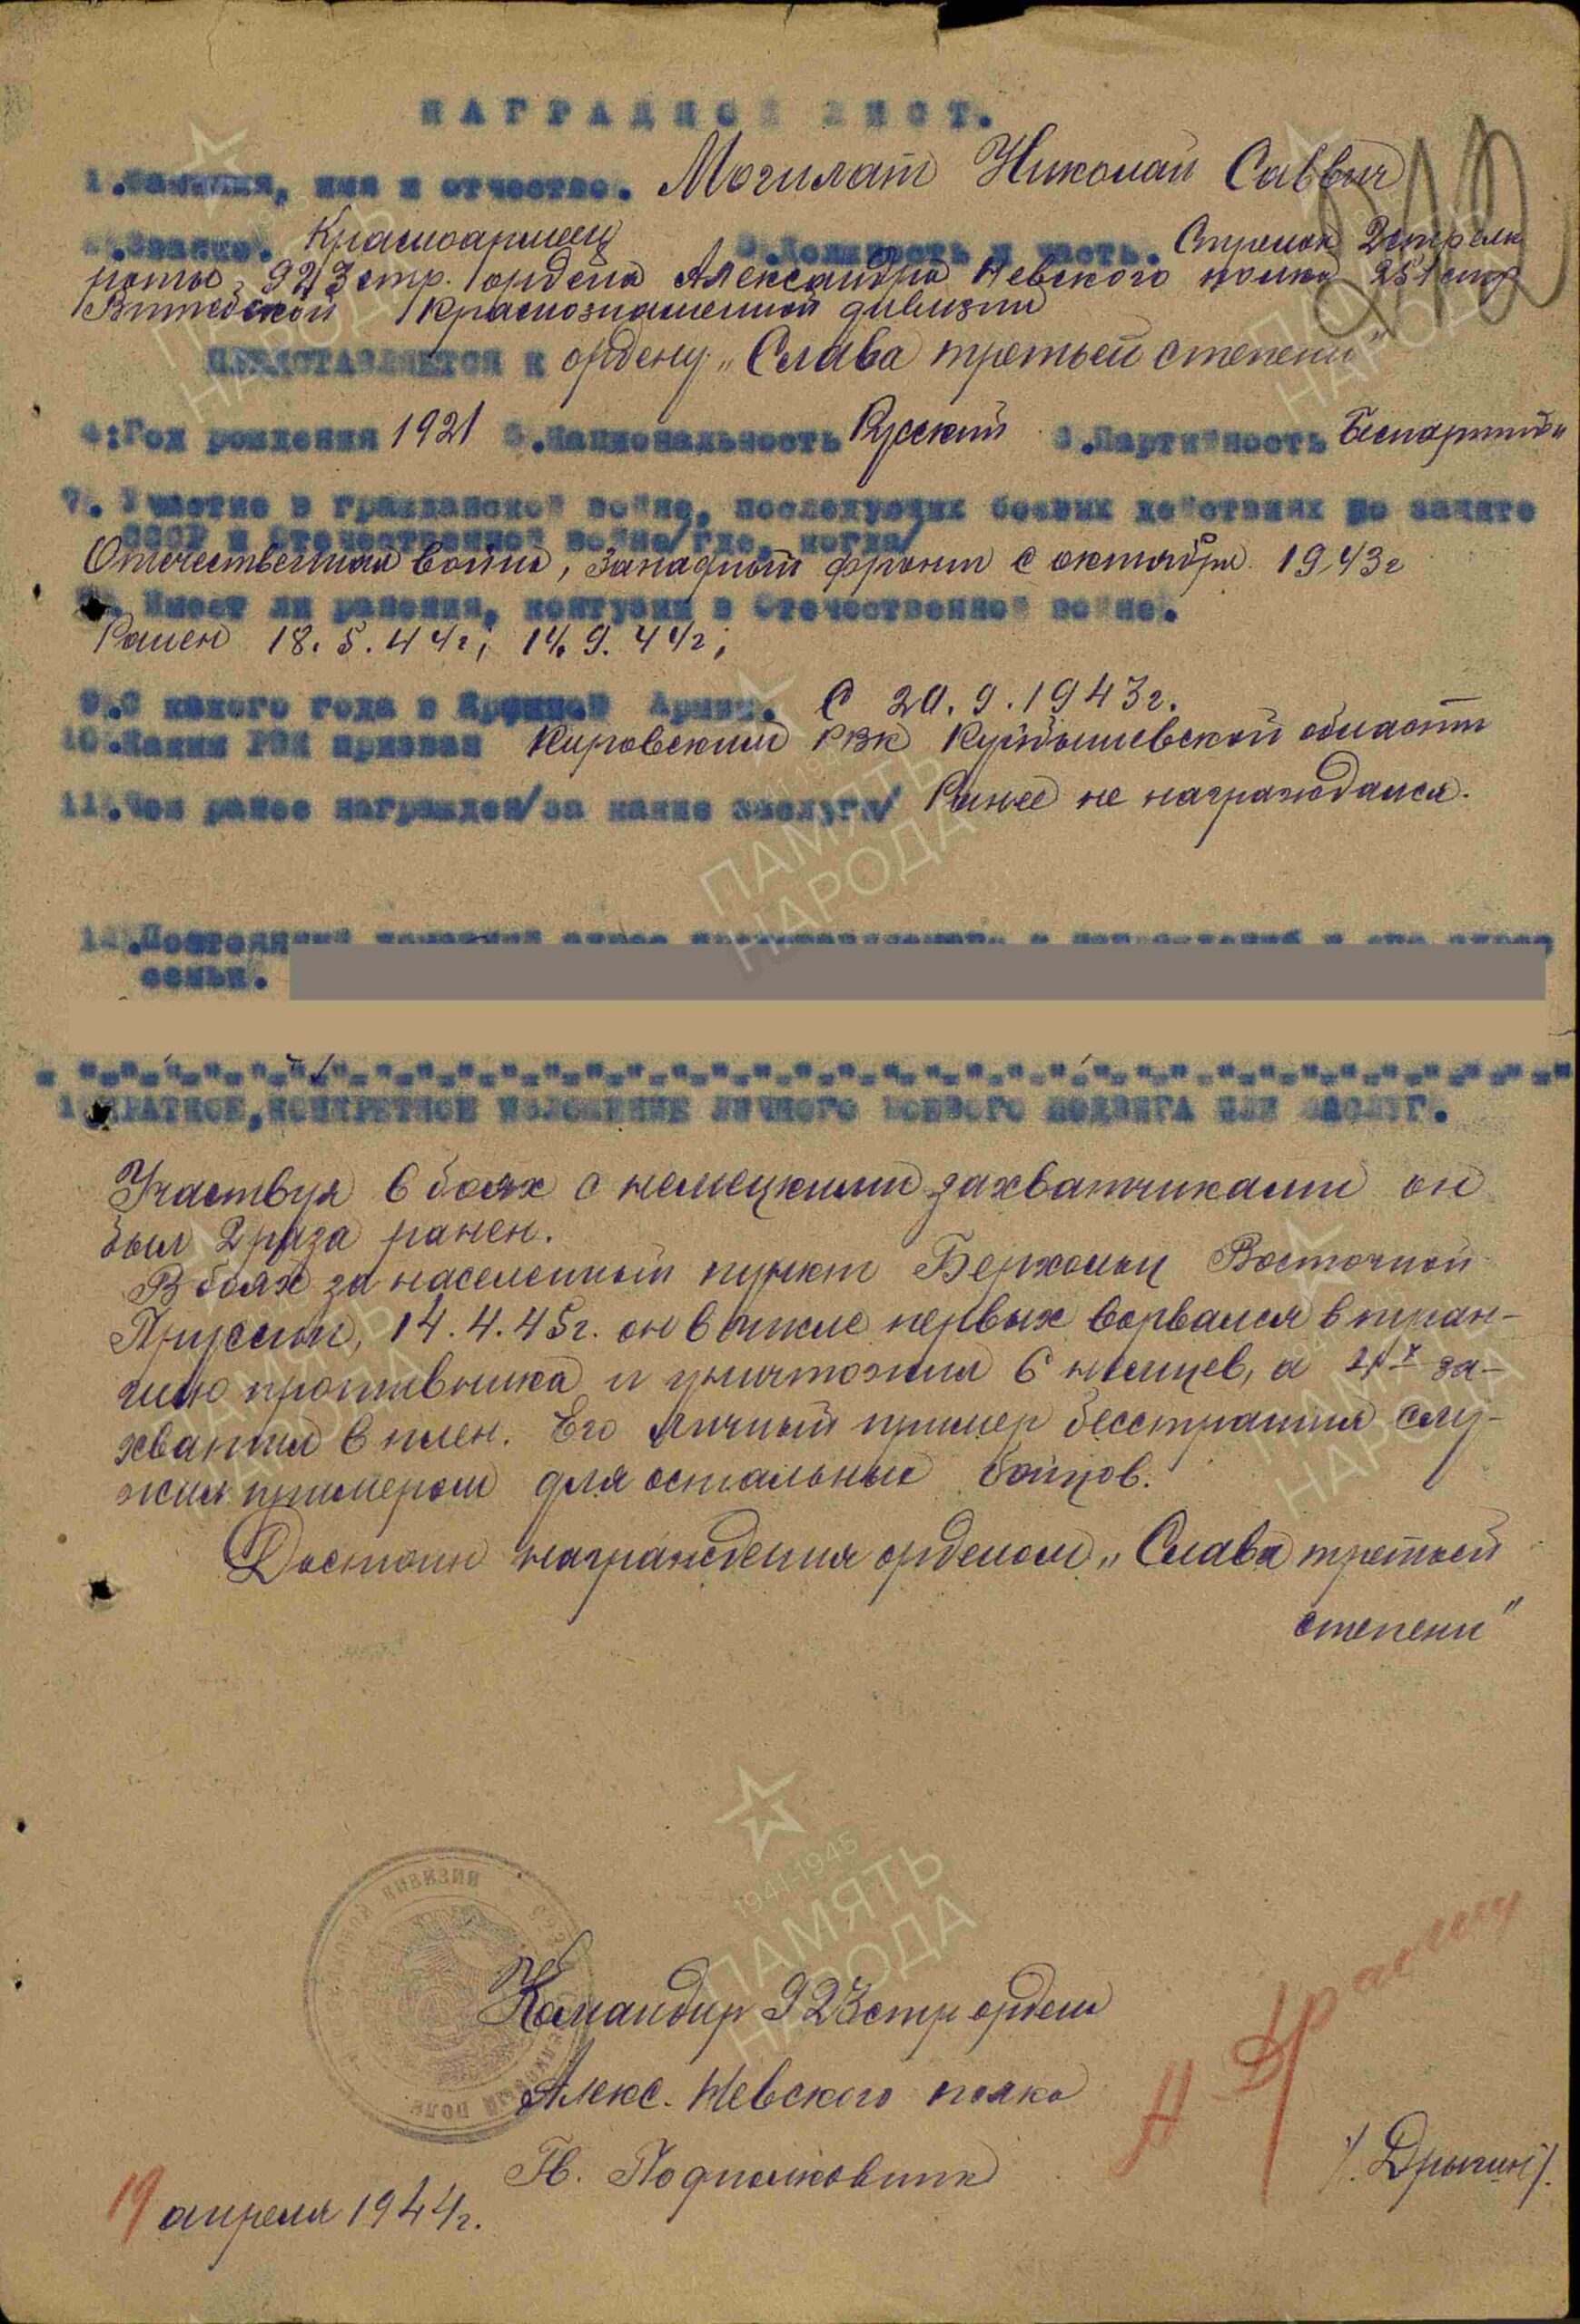 НАГРАДНОЙ ЛИСТ.
1.Фамилия, имя и отчество. Могилат Николай Саввич
2.Звание. Красноармеец 3.Должность и часть. Стрелок 2 стрелк
роты, 923 стр. ордена Александра Невского полка 251 стр
Витебской Краснознаменной дивизии
ПРЕДСТАВЛЯЕТСЯ к ордену „Слава третьей степени"
4.Год рождения 1921 5.Национальность Русский 6.Партийность Беспартийн
7. Участие в гражданской войне, последующих боевых действиях по защите
СССР и Отечественной войне/где, когда/
Отечественная война, Западный фронт с октября 1943г
8. Имеет ли ранения, контузии в Отечественной войне.
Ранен 18.5.44г; 14.9.44г;
9.С какого года в Красной Армии. С 20.9.1943г.
10.Каким РВК призван Кировским РВК Куйбышевской области
11.Чем ранее награжден/за какие заслуги/ Ранее не награждался.
12.Постоянный домашний адрес представляемого к награждению и его адрес
семьи.
13.КРАТКОЕ,КОНКРЕТНОЕ ИЗЛОЖЕНИЕ ЛИЧНОГО БОЕВОГО ПОДВИГА ИЛИ ЗАСЛУГ.
Участвуя в боях с немецкими захватчиками он
был 2 раза ранен.
В боях за населенный пункт Восточной
Пруссии, 14.4.45г. он в числе первых ворвался в тран-
шею противника и уничтожил 6 немцев, а 4х за-
хватил в плен. Его личный пример бесстрашия слу-
жил примером для остальных бойцов.
Достоин награждения орденом „Слава третьей
степени"
Командир 923 стр ордена
Алекс. Невского полка
Гв. Подполковник /Дрыгин/.
19 апреля 1944г.
1941-1945
ПАМЯТЬ
НАРОДА